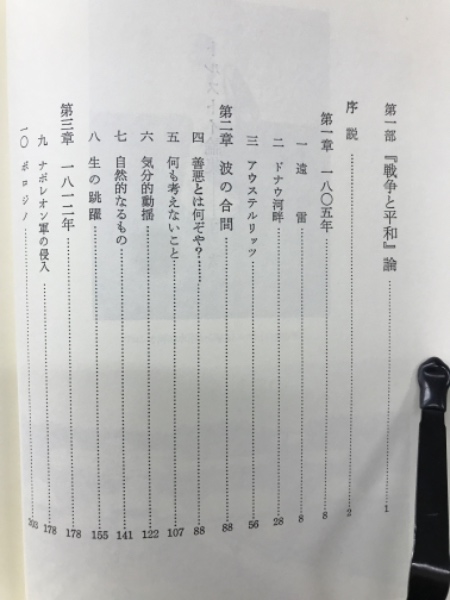 第一部 『戦争と平和』論……1
序説……2
第一章 一八〇五年……8
一 遠雷……8
二 ドナウ河畔……28
三 アウステルリッツ……56
第二章 波の合間……88
四 善悪とは何ぞや?……88
五 何も考えないこと……107
六 気分的動揺……122
七 自然的なるもの……141
八 生の跳躍……155
第三章 一八一二年……178
九 ナポレオン軍の侵入……178
一〇 ボロジノ……203